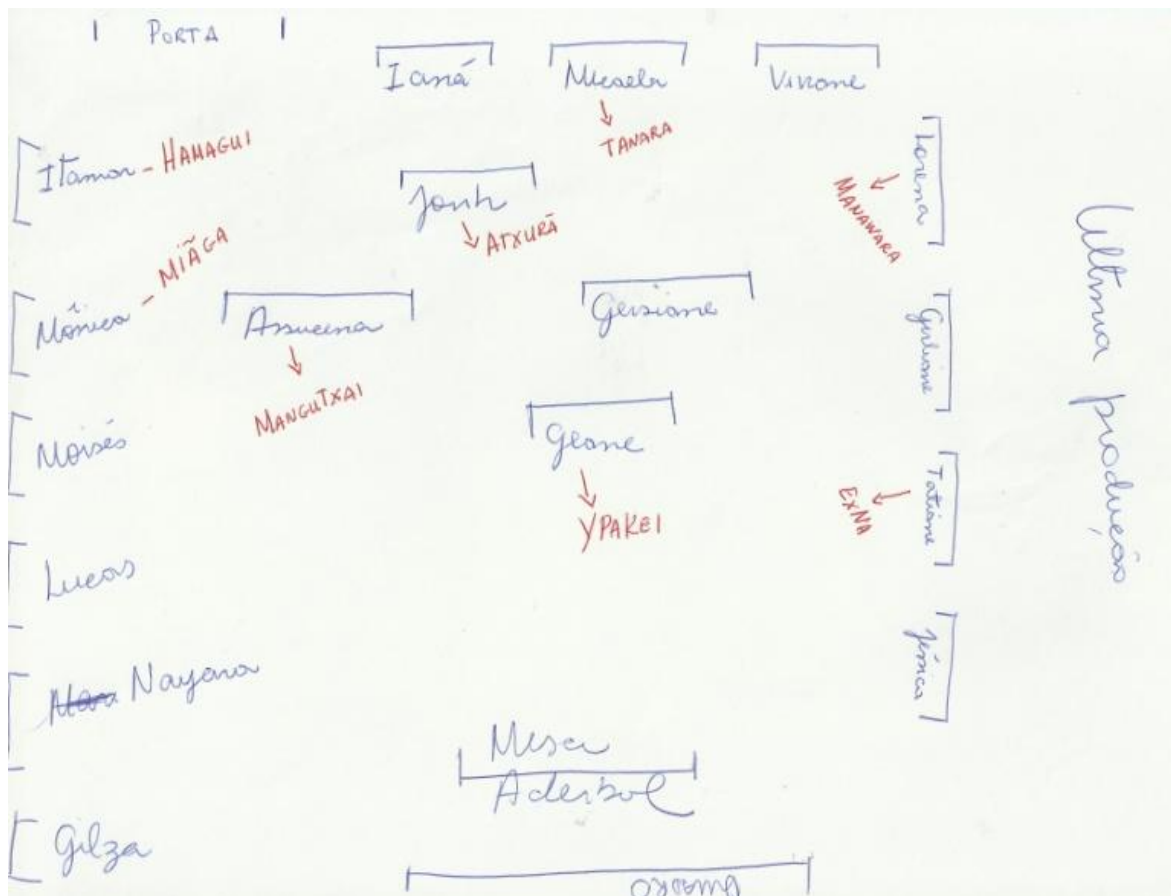 PORTA
Ianá
Micaela
Viviane
TANARA
Itamar - HAMAGUI
Jonh
ATXURÃ
Lorena
MANAWARA
Mônica - MIÃGA
Assucena
MANGUTXAI
Geisiane
Girliane
Moisés
Geane
YPAKEI
Tatiane
EXNA
Lucas
Jéssica
Nayara
Mesa
Aderbal
Gilza
Quadro
Ultima produção